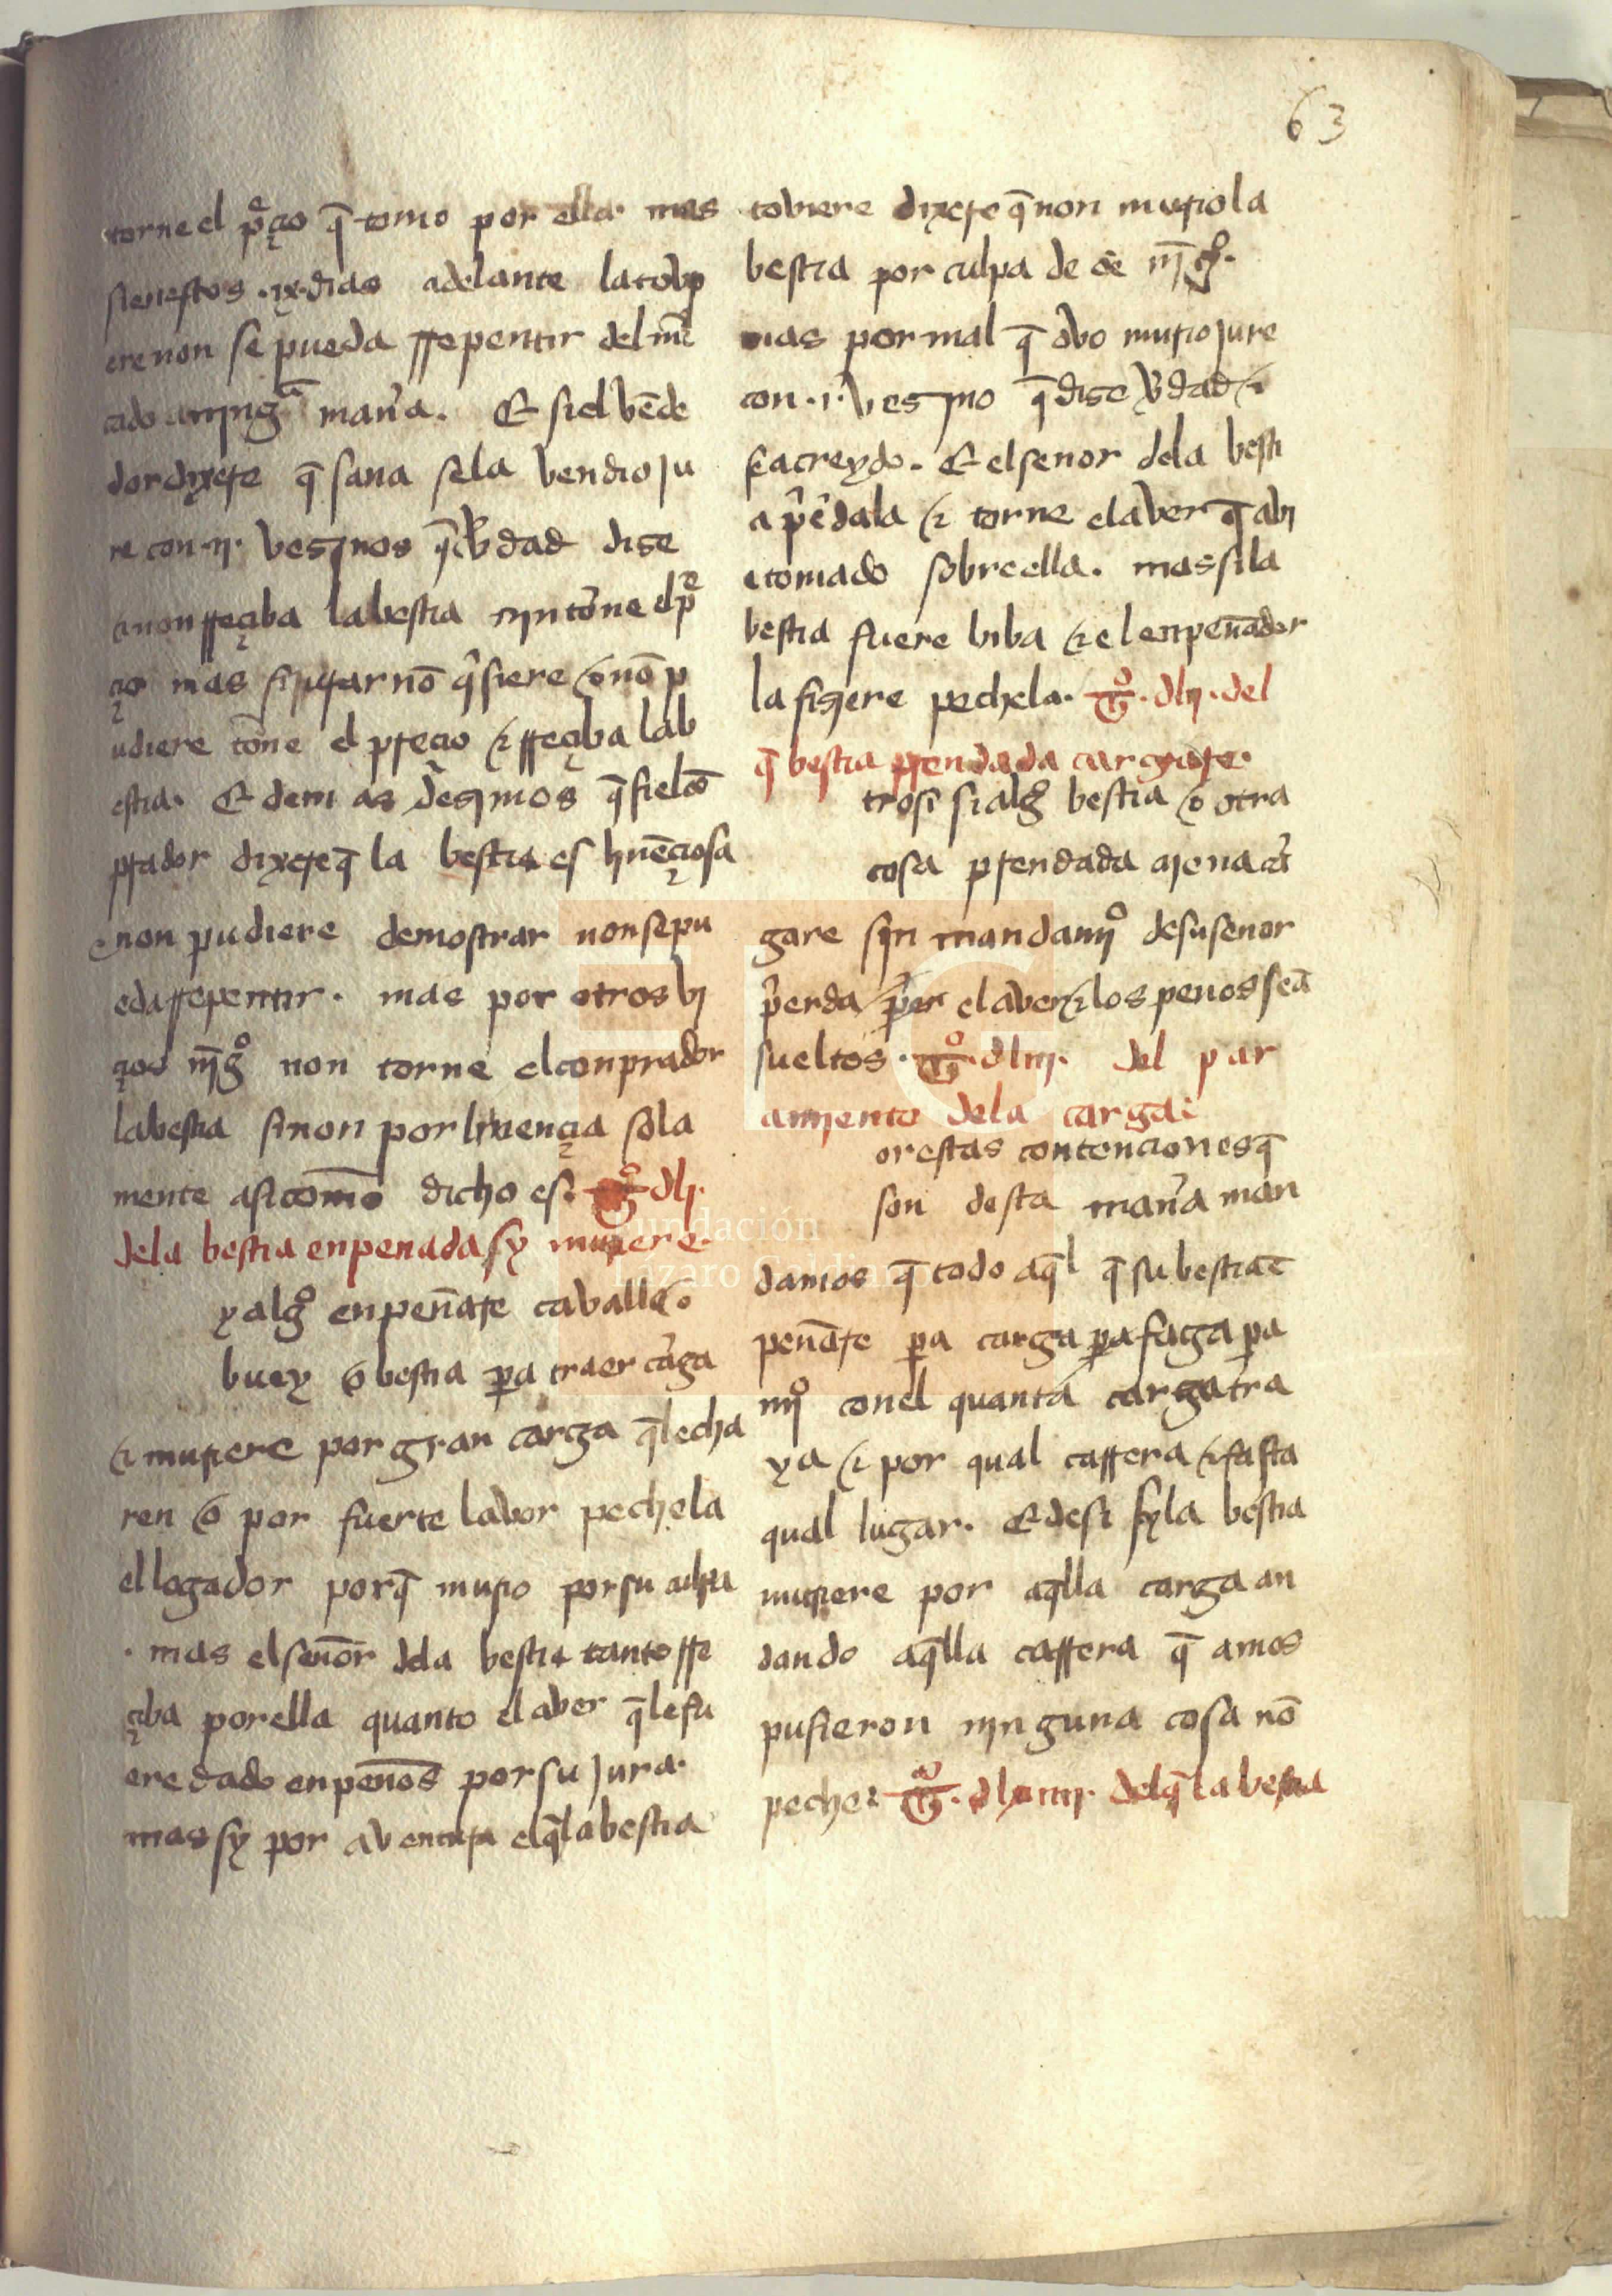 63
torne el p̃çio q̃ tomo por ella. mas
si en estos .ix. dias adelante la tovi
ere non se pueda rrepentir del m̃c
cado en ning̃a man̾a. Et si el vẽde
dor dixere q̃ sana se la vendio ju
re con .ij. vesinos q̃ v̾dad dise
e non rreçiba la bestia nin tor̃ne el p̃
çio mas si jurar nõ q̾siere o nõ p
udiere tor̃ne el preçio e rreçiba la b
estia. Et demas desimos q̃ si el cõ
prador dixere q̃ la bestia es huẽçiosa
e non pudiere demostrar non se pu
eda rrepentir. mas por otros bi
çios nĩgº non torne el conprador
la bestia sinon por huençia sola
mente asi commo dicho es. tº. dlj.
dela bestia enpenada sy muriere.
y algº enpeñare cavallo o
buey o bestia pa traer car̃ga
e muriere por gran carga q̃ le echa
ren o por fuerte labor peche la
el logador porq̃ murio por su culpa
. mas el señor dela bestia tanto rre
çiba por ella quanto el aver q̃ le fu
ere dado en peños por su jura.
mas sy por aventura el q̃ la bestia
toviere dixere q̃ non murio la
bestia por culpa de de nĩgº.
mas por mal q̃ ovo murio jure
con .i. vesino q̃ dise v̾dad e
sea creydo. Et el senor dela besti
a p̾ẽdala e torne el aver q̃ abi
e tomado sobre ella. mas si la
bestia fuere biba e el enpeñador
la firiere pechela. tº. dlij. del
q̃ bestia prendada cargare.
trosi si algº bestia o otra
cosa prendada ajena car̃
gare sin mandamjº de su senor
p̾erda el aver e los penos seã
sueltos. tº. dliij. del par
amiento dela carga.
or estas contenciones q̃
son desta man̾a man
damos q̃ todo aq̃l q̃ su bestia ẽ
peñare pa carga pa faga pa
mjº con el quanta carga tra
ya e por qual carrera e fasta
qual lugar. Et desi sy la bestia
muriere por aq̃lla carga an
dando aq̃lla carrera q̃ amos
pusieron ninguna cosa nõ
peche. tº. dliiij. del q̃ la bestia